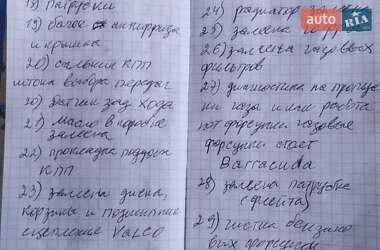 19) бачок антифриза
и крышка
20) сальник КПП
штока выбора передач
20) датчик зад хода
21) масло в коробке
замена
22) прокладка поддона
КПП
23) замена диска,
корзины и
сцепление Valeo
24) радиатор
25) замена
26) замена газовых
фильтров
27) диагностика на
газы и как работа
ют форсунки газовые
форсунки стоят
Barracuda
28) замена патрубка
(флейта)
29) чистка бензино
вых форсунок
AUTO
RIA
.com